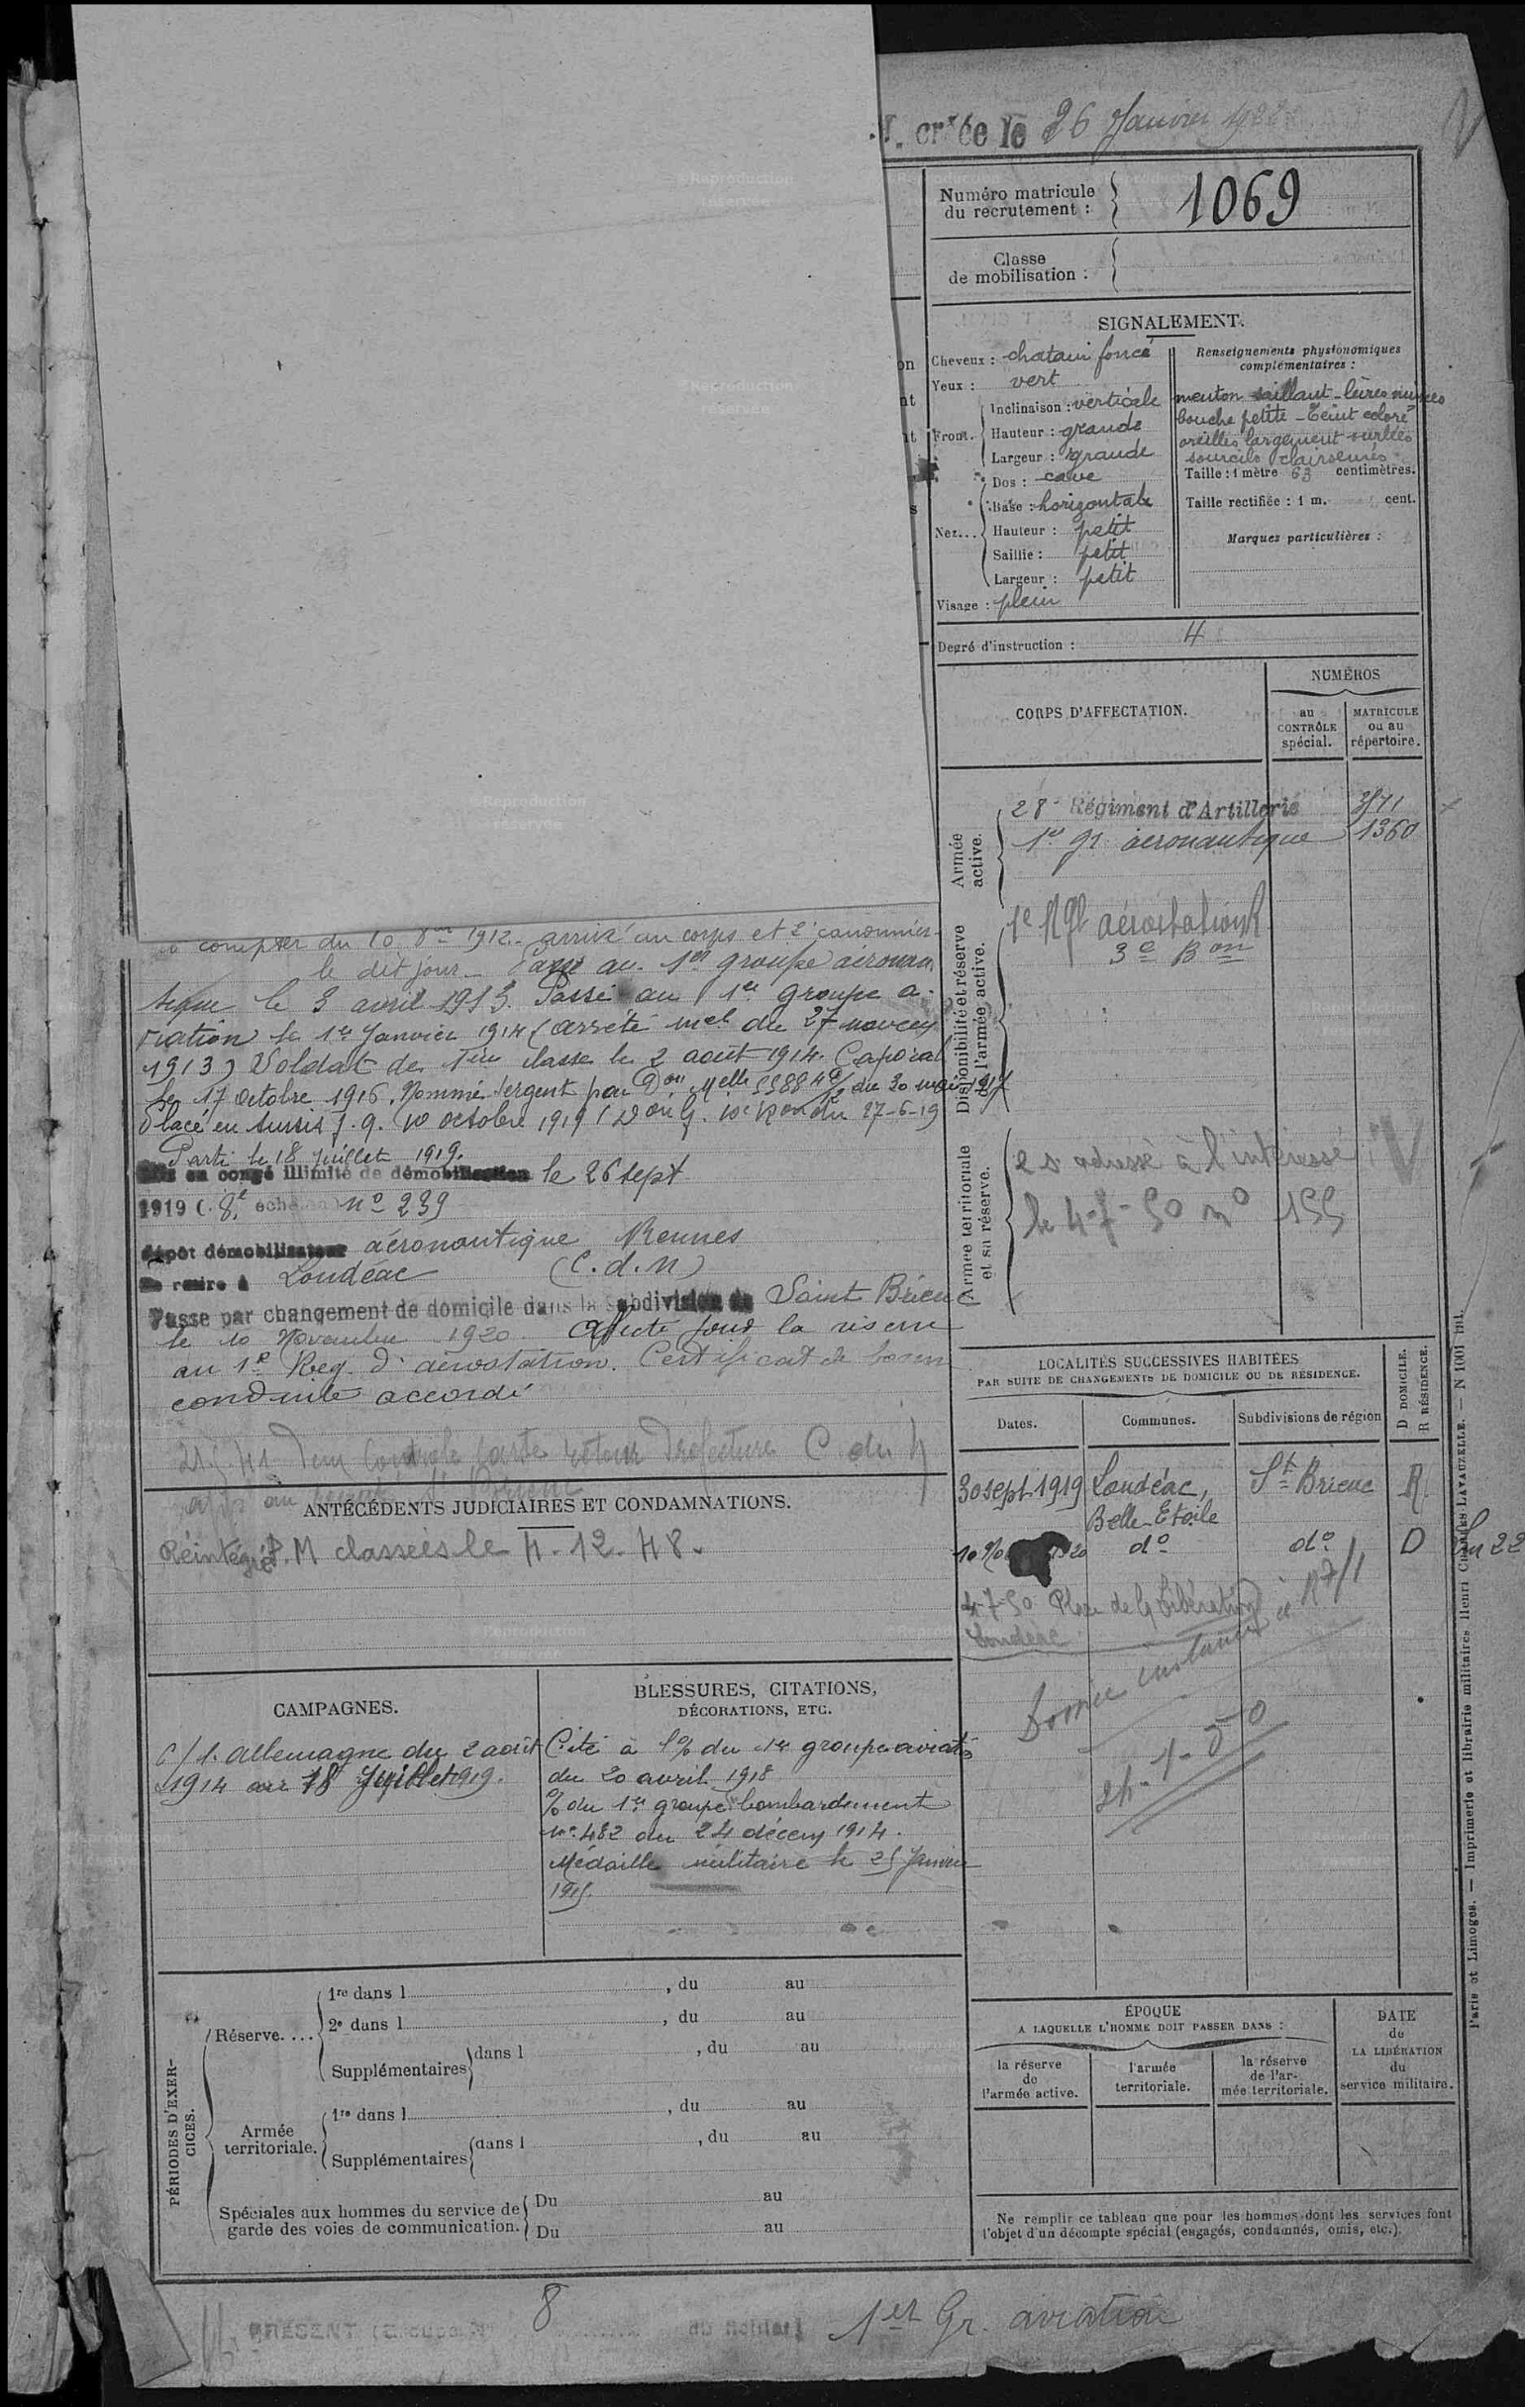 créée le 26 Janvier 1922
Numéro matricule
du recrutement :
1069
Classe
de mobilisation :
SIGNALEMENT.
Cheveux : chatain foncé
Yeux : vert
Front.
Inclinaison : verticale
Hauteur : grande
Largeur : grande
Nez...
Dos : cave
Base : horizontale
Hauteur : petit
Saillie : petit
Largeur : petit
Visage : plein
Renseignements physionomiques
complémentaires :
menton saillant - lèvres minces
bouche petite - teint coloré
oreilles largement ourlées
sourcils clairsemés
Taille : 1 mètre 63 centimètres.
Taille rectifiée : 1 m. cent.
Marques particulières :
Degré d'instruction : 4
CORPS D'AFFECTATION.
NUMÉROS
au
CONTRÔLE
spécial.
MATRICULE
ou au
répertoire.
Armée
active.
28e Régiment d'Artillerie
1er gr aéronautique 1360
Disponibilité et réserve
de l'armée active.
1e Rgt aérostation R
3e Bon
Armée territoriale
et sa réserve.
2 s adressé à l'intéressé
le 4-7-50 no 155
à compter du 10 8bre 1912. arrivé au corps et 2e canonnier
le dit jour. Passé au 1er groupe aéronau
tique le 3 avril 1913. Passé au 1er groupe a
viation le 1er Janvier 1914 (arrêté mel du 27 novem
1913) Soldat de 1ère classe le 2 août 1914. Caporal
le 17 octobre 1916. Nommé Sergent par Don Melle 5588 du 30 mai 1917
Placé en sursis j. q. 10 octobre 1919 ( du 27-6-19
Parti le 18 juillet 1919.
en congé illimité de démobilisation le 26 sept
1919 (8e échelon) no 239
dépôt démobilisateur aéronautique Rennes
Se retire à Loudéac (C.d.N)
Passé par changement de domicile dans la subdivision de Saint Brieuc
le 10 Novembre 1920. Affecté pour la réserve
au 1er Reg. d'aérostation. Certificat de bonne
conduite accordé
ANTÉCÉDENTS JUDICIAIRES ET CONDAMNATIONS.
Réintégré P.M classées le 4-12-48.
LOCALITÉS SUCCESSIVES HABITÉES
PAR SUITE DE CHANGEMENTS DE DOMICILE OU DE RÉSIDENCE.
Dates.
Communes.
Subdivisions de région
D DOMICILE.
R RÉSIDENCE.
30 sept 1919 Loudéac, St Brieuc R.
Belle-Etoile
10 No 1920 do do D
4-7-50 Place de la Libération
Loudéac
CAMPAGNES.
C/ l'Allemagne du 2 août
1914 au 18 Juillet 1919.
BLESSURES, CITATIONS,
DÉCORATIONS, ETC.
Cité à l'o/ du 1er groupe aviatn
du 20 avril 1918
o/ du 1er groupe bombardement
no 482 du 24 décem 1914.
Médaille militaire le 25 Janvier
1915.
PÉRIODES D'EXER-
CICES.
Réserve....
1re dans l , du au
2e dans l , du au
Supplémentaires dans l , du au
Armée
territoriale.
1re dans l , du au
Supplémentaires dans l , du au
Spéciales aux hommes du service de
garde des voies de communication.
Du au
Du au
ÉPOQUE
A LAQUELLE L'HOMME DOIT PASSER DANS :
la réserve
de
l'armée active.
l'armée
territoriale.
la réserve
de l'ar-
mée territoriale.
DATE
de
LA LIBÉRATION
du
service militaire.
Ne remplir ce tableau que pour les hommes dont les services font
l'objet d'un décompte spécial (engagés, condamnés, omis, etc.).
Paris et Limoges. — Imprimerie et librairie militaires Henri CHARLES-LAVAUZELLE. — N 1001 int.
8
1er Gr. aviation